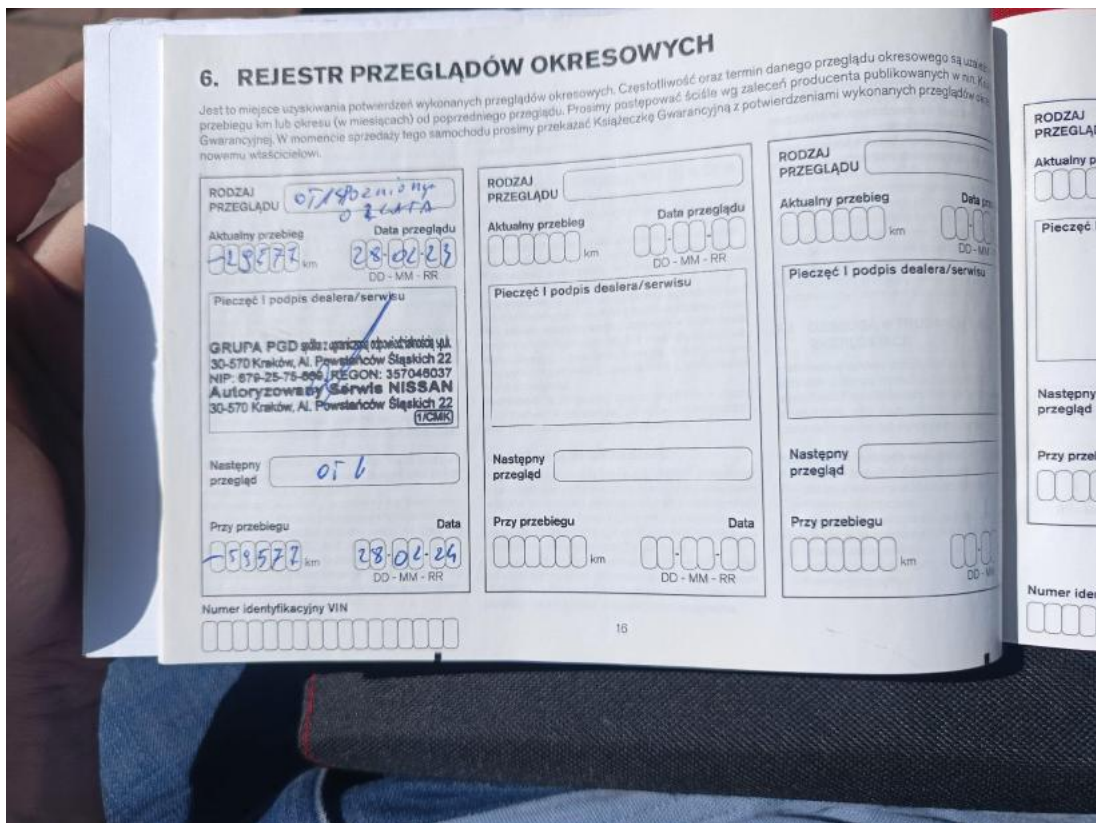 6. REJESTR PRZEGLĄDÓW OKRESOWYCH
Jest to miejsce uzyskiwania potwierdzeń wykonanych przeglądów okresowych. Częstotliwość oraz termin danego przeglądu okresowego są
przebiegu km lub okresu (w miesiącach) od poprzedniego przeglądu. Prosimy postępować ściśle wg zaleceń producenta publikowanych w nin.
Gwarancyjnej. W momencie sprzedaży tego samochodu prosimy przekazać Książeczkę Gwarancyjną z potwierdzeniami wykonanych przeglądów
nowemu właścicielowi.
RODZAJ
PRZEGLĄDU
O 2 LATA
Aktualny przebieg
Data przeglądu
km
28-02-23
DD - MM - RR
Pieczęć i podpis dealera/serwisu
GRUPA PGD spółka z ograniczoną odpowiedzialnością sp.k.
30-570 Kraków, Al. Powstańców Śląskich 22
NIP: 679-25-75- REGON: 357046037
Autoryzowany Serwis NISSAN
30-570 Kraków, Al. Powstańców Śląskich 22
1/CMK
Następny
przegląd
Przy przebiegu
Data
-59577 km
28-02-24
DD - MM - RR
Numer identyfikacyjny VIN
RODZAJ
PRZEGLĄDU
Aktualny przebieg
Data przeglądu
km
DD - MM - RR
Pieczęć i podpis dealera/serwisu
Następny
przegląd
Przy przebiegu
Data
km
DD - MM - RR
16
RODZAJ
PRZEGLĄDU
Aktualny przebieg
Data
km
DD - MM
Pieczęć i podpis dealera/serwisu
Następny
przegląd
Przy przebiegu
km
DD - M
RODZAJ
PRZEGLĄD
Aktualny p
Pieczęć i
Następny
przegląd
Przy przeb
Numer iden